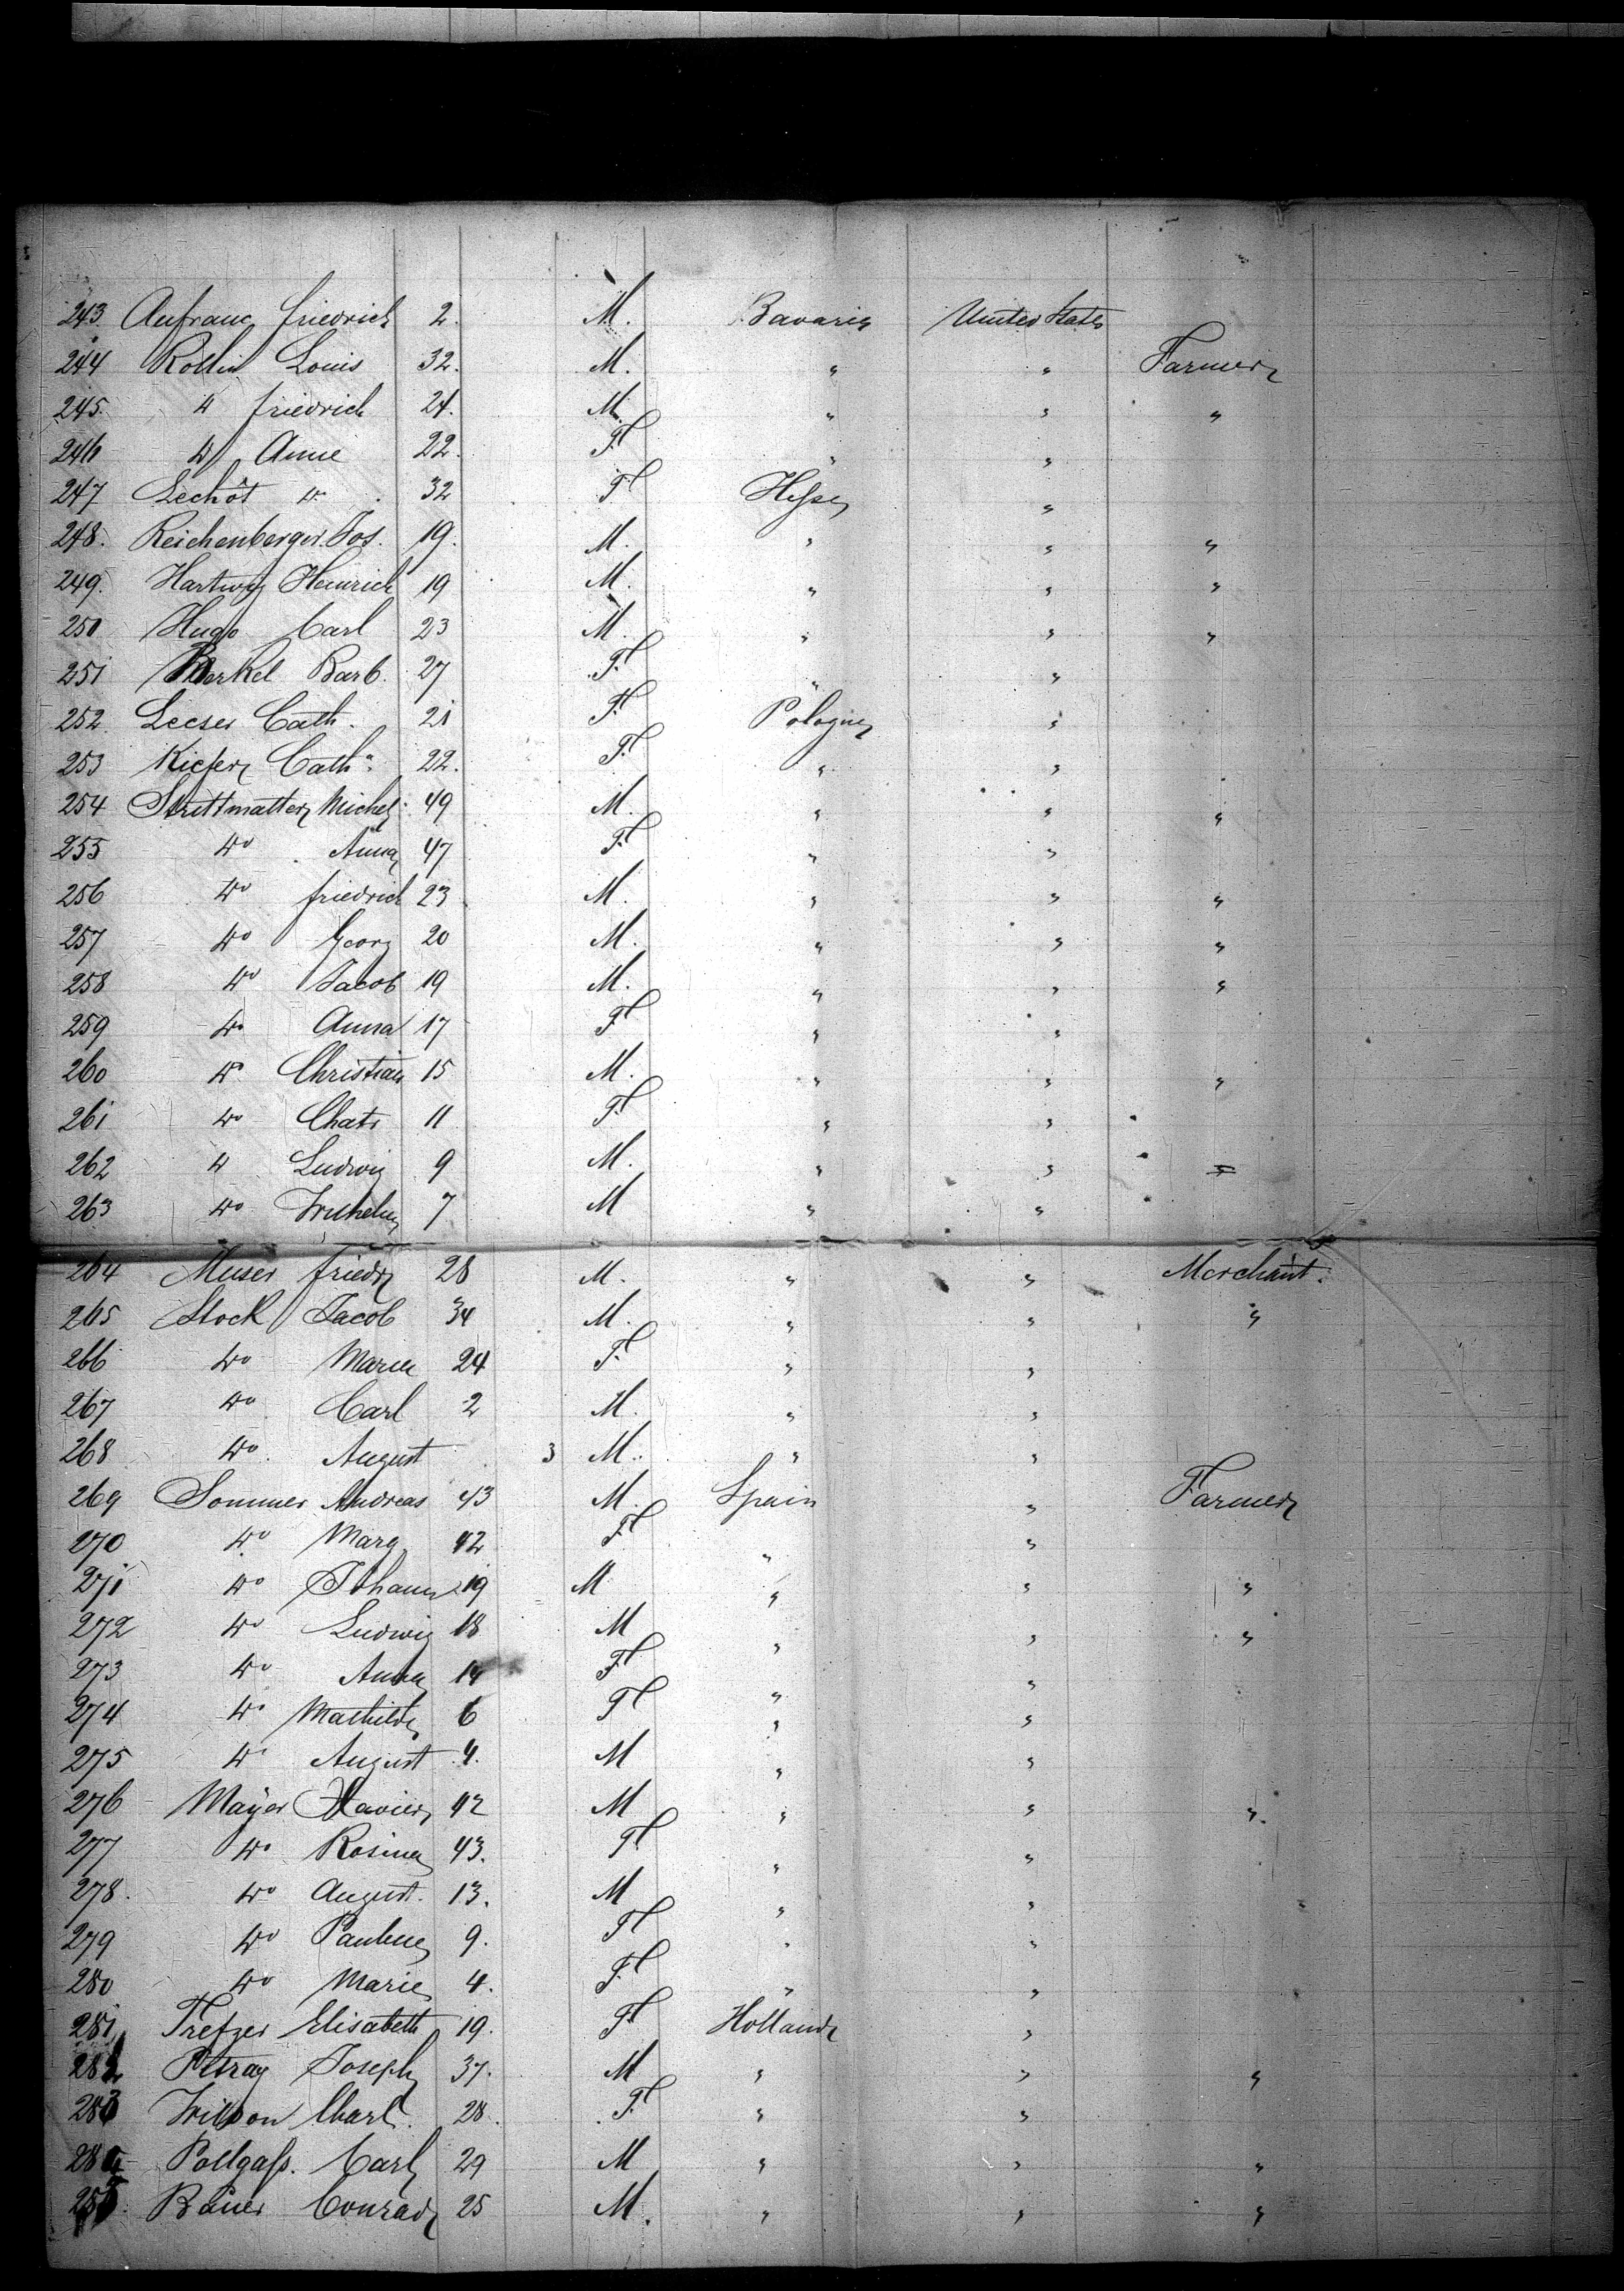 243. Aufranc friedrich 2. M. Bavaria United States
244 Rollin Louis 32. M. " " Farmer
245. " friedrich 24. M. " " "
246 do Anne 22. F. " "
247 Lechôt do 32 F Hesse "
248. Reichenberger Jos. 19. M. " " "
249. Hartwig Heinrich 19 M. " " "
250 Hugo Carl 23 M. " " "
251 Merkel Barb. 27 F. " "
252. Leeser Cath. 21 F. Pologne "
253 Kiefer Cath. 22. F. " "
254 Strittmatter Michel 49 M. " " "
255 do Anna 47 F. " "
256 do friedrich 23 M. " " "
257 do Georg 20 M. " " "
258 do Jacob 19 M. " " "
259 do Anna 17 F " "
260 do Christian 15 M. " " "
261 do Chats 11 F. " "
262 do Ludwig 9 M. " " "
263 do Wilhelm 7 M " "
264 Muser friedr 28 M. " " Merchant.
265 Stock Jacob 34 M. " " "
266 do Maria 24 F. " "
267 do Carl 2 M. " "
268 do August 3 M. " "
269 Sommer Andreas 43 M. Spain " Farmer
270 do Marg 42 F. " "
271 do Johann 19 M " " "
272 do Ludwig 18 M " " "
273 do Anna 14 F " "
274 do Mathilde 6 F " "
275 do August 4. M " "
276 Mayer Xavier 42 M " " "
277 do Rosina 43. F " "
278. do August. 13. M " "
279 do Pauline 9. F " "
280 do Marie 4. F. " "
281 Tretzer Elisabeth 19. F Holland "
282 Petray Joseph 37. M " " "
283 Wilson Charl. 28. F. " "
284 Pollgass. Carl 29 M " " "
285. Bauer Conrad 25 M. " " "